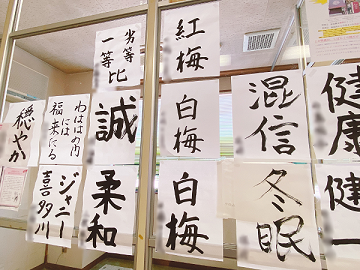 健康
健一
混信
冬眠
紅梅
白梅
白梅
劣等
一等
比
誠
柔和
わははの内
には
福来にる
ジャニー
喜多川
穏やか